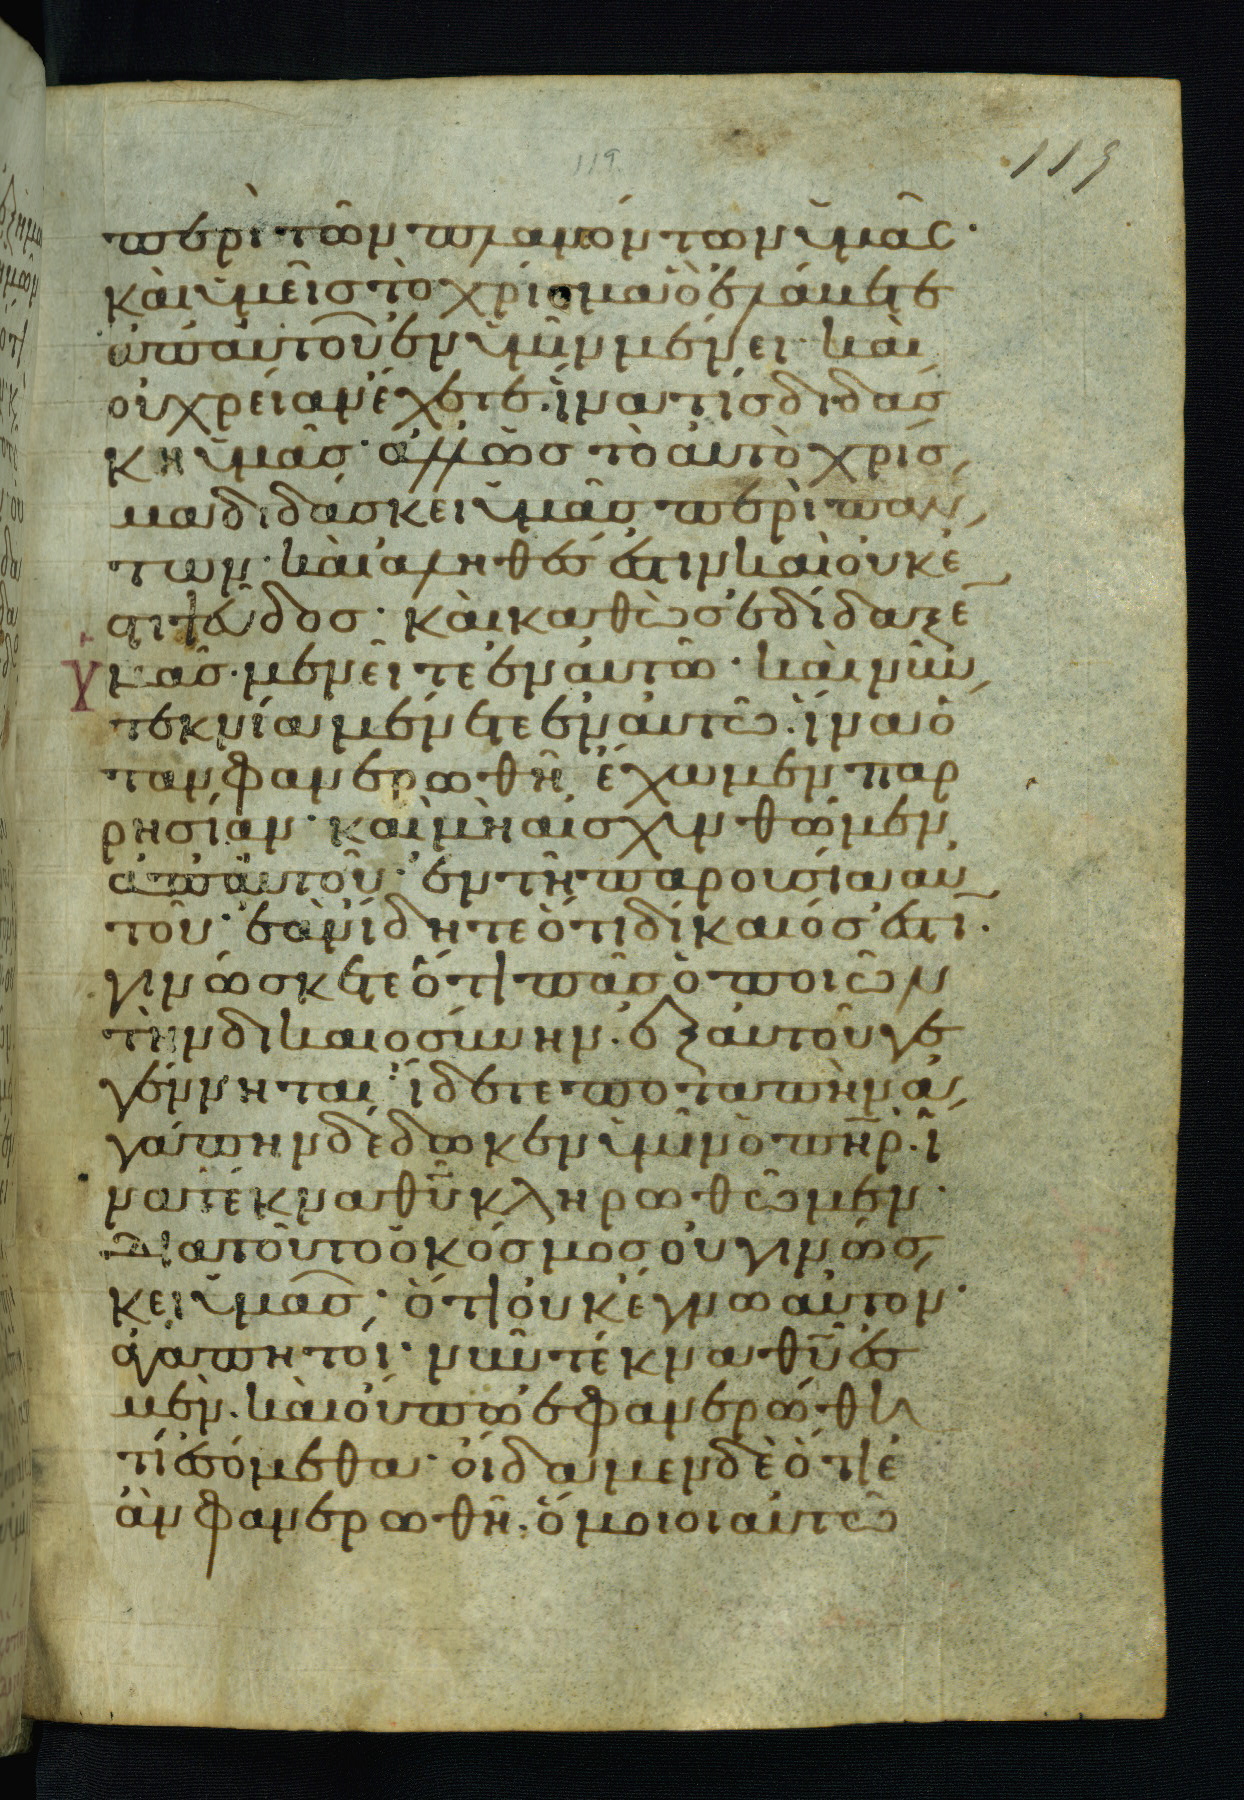 119
119
περὶ τῶν πλανόντων ὑμᾶς·
καὶ ὑμεῖς τὸ χρίσμα ὃ ἐλάβετε
ἀπ' αὐτοῦ ἐν ὑμῖν μένει καὶ
οὐ χρείαν ἔχετε· ἵνα τίς διδάσ
κη ὑμᾶς· ἀλλ' ὡς τὸ αὐτὸ χρίσ
μα διδάσκει ὑμᾶς περὶ παν
των· καὶ ἀληθές ἐστιν καὶ οὐκ ἔ
στι ψεῦδος· καὶ καθὼς ἐδίδαξε
ὑμᾶς· μενεῖτε ἐν αὐτῶ· καὶ νῦν
τεκνία μένετε ἐν αὐτῶ· ἵνα ὅ
ταν φανερωθῆ ἔχωμεν παρ
ρησίαν· καὶ μὴ αἰσχυνθώμεν
ἀπ' αὐτοῦ· ἐν τῆ παρουσία αυ
τοῦ· ἐὰν ἴδητε ὅτι δίκαιός ἐστι·
γινώσκετε ὅτι πᾶς ὁ ποιῶν
τὴν δικαιοσύνην· ἐξ αὐτοῦ γε
γέννηται· ἴδετε ποταπὴν ἀ
γάπην δέδωκεν ὑμῖν ὁ πηρ· ἵ
να τέκνα θυ κληρωθῶμεν·
Διατοῦτο ὁ κόσμος οὐ γινώσ
κει ὑμᾶς, ὅτι οὐκ ἔγνω αὐτον·
ἀγαπητοί· νῦν τέκνα θυ ἐσ
μέν· καὶ οὔπω ἐφανερώθη
τί ἐσόμεθα· οἴδαμεν δὲ ὅτι ἐ
ὰν φανερωθῆ· ὅμοιοι αὐτῶ